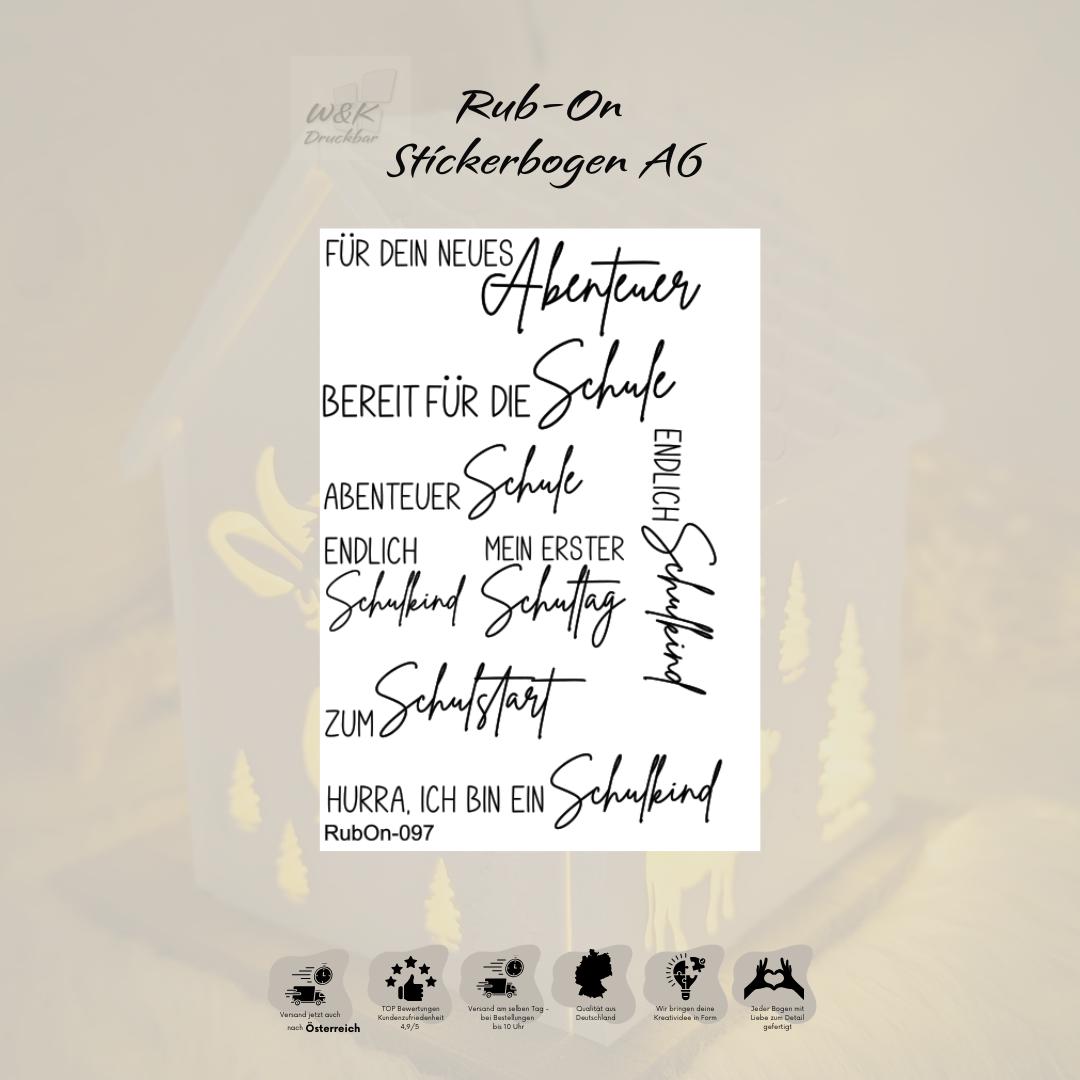 W&K
Druckbar
Rub-On
Stickerbogen A6
FÜR DEIN NEUES Abenteuer
BEREIT FÜR DIE Schule
ABENTEUER Schule
ENDLICH
Schulkind
MEIN ERSTER
Schultag
ENDLICH Schulkind
ZUM Schulstart
HURRA, ICH BIN EIN Schulkind
RubOn-097
Versand jetzt auch
nach Österreich
TOP Bewertungen
Kundenzufriedenheit
4,9/5
Versand am selben Tag -
bei Bestellungen
bis 10 Uhr
Qualität aus
Deutschland
Wir bringen deine
Kreatividee in Form
Jeder Bogen mit
Liebe zum Detail
gefertigt